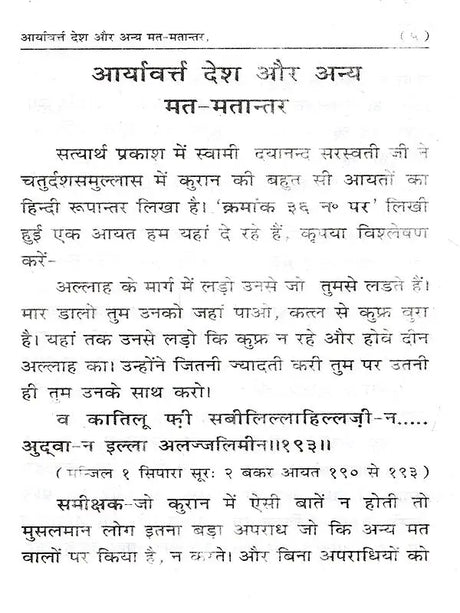 आर्यावर्त्त देश और अन्य मत-मतान्तर, ( ५ )
आर्यावर्त्त देश और अन्य
मत-मतान्तर
सत्यार्थ प्रकाश में स्वामी दयानन्द सरस्वती जी ने
चतुर्दशसमुल्लास में कुरान की बहुत सी आयतों का
हिन्दी रूपान्तर लिखा है। ‘क्रमांक ३६ न० पर’ लिखी
हुई एक आयत हम यहां दे रहे हैं, कृपया विश्लेषण
करें-
अल्लाह के मार्ग में लड़ो उनसे जो तुमसे लडते हैं।
मार डालो तुम उनको जहां पाओ, कत्ल से कुफ्र बुरा
है। यहां तक उनसे लड़ो कि कुफ्र न रहे और होवे दीन
अल्लाह का। उन्होंने जितनी ज्यादती करी तुम पर उतनी
ही तुम उनके साथ करो।
व कातिलू फ़ी सबीलिल्लाहिल्लज़ी-न.....
अुद्वा-न इल्ला अलज्जलिमीन॥१९३॥
( मन्जिल १ सिपारा सूरः २ बकर आयत १९० से १९३ )
समीक्षक-जो कुरान में ऐसी बातें न होती तो
मुसलमान लोग इतना बड़ा अपराध जो कि अन्य मत
वालों पर किया है, न करते। और बिना अपराधियों को